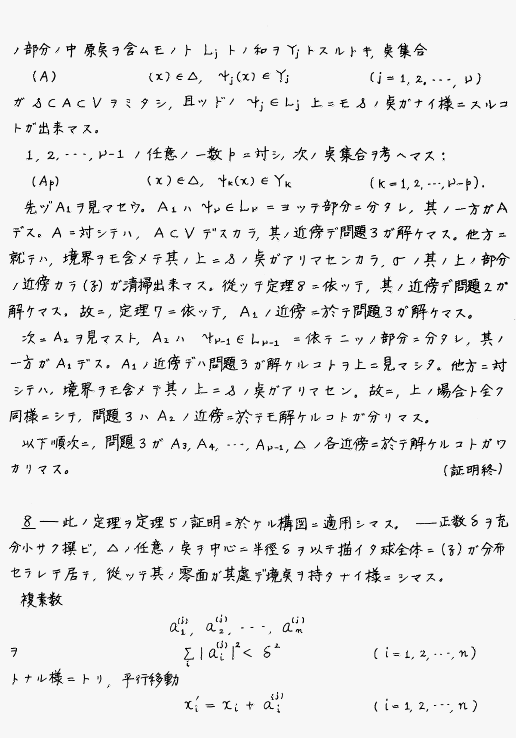 ノ部分ノ中原奌ヲ含ムモノト Lj トノ和ヲ Yj トスルトキ, 奌集合
(A) (x) ∈ Δ, ψj(x) ∈ Yj (j = 1, 2, ···, ν)
ガ S ⊂ A ⊂ V ヲミタシ, 且ッドノ ψj ∈ Lj 上ニモ S ノ奌ガナイ様ニスルコ
トガ出来マス。
1, 2, ···, ν-1 ノ任意ノ一数 p ニ対シ, 次ノ奌集合ヲ考ヘマス:
(Ap) (x) ∈ Δ, ψk(x) ∈ Yk (k = 1, 2, ···, ν-p).
先ヅ A1 ヲ見マセウ。A1 ハ ψν ∈ Lν ニヨッテ部分ニ分タレ, 其ノ一方ガ A
デス。A ニ対シテハ, A ⊂ V デスカラ, 其ノ近傍デ問題3ガ解ケマス。他方ニ
就テハ, 境界ヲモ含メテ其ノ上ニ S ノ奌ガアリマセンカラ, σ ノ其ノ上ノ部分
ノ近傍カラ (ℨ) ガ清掃出来マス。従ッテ定理8ニ依ッテ, 其ノ近傍デ問題2ガ
解ケマス。故ニ, 定理7ニ依ッテ, A1 ノ近傍ニ於テ問題3ガ解ケマス。
次ニ A2 ヲ見マスト, A2 ハ ψν-1 ∈ Lν-1 ニ依テ二ッノ部分ニ分タレ, 其ノ
一方ガ A1 デス。A1 ノ近傍デハ問題3ガ解ケルコトヲ上ニ見マシタ。他方ニ対
シテハ, 境界ヲモ含メテ其ノ上ニ S ノ奌ガアリマセン。故ニ, 上ノ場合ト全ク
同様ニシテ, 問題3ハ A2 ノ近傍ニ於テモ解ケルコトガ分リマス。
以下順次ニ, 問題3ガ A3, A4, ···, Aν-1, Δ ノ各近傍ニ於テ解ケルコトガワ
カリマス。 (証明終)
8 — 此ノ定理ヲ定理5ノ証明ニ於ケル構図ニ適用シマス。 — 正数 δ ヲ充
分小サク撰ビ, Δ ノ任意ノ奌ヲ中心ニ半径 δ ヲ以テ描イタ球全体ニ (ℨ) ガ分布
セラレテ居テ, 従ッテ其ノ零面ガ其處デ境奌ヲ持タナイ様ニシマス。
複素数
a1^(j), a2^(j), ···, an^(j)
ヲ Σi |ai^(j)|² < δ² (i = 1, 2, ···, n)
トナル様ニトリ, 平行移動
xi′ = xi + ai^(j) (i = 1, 2, ···, n)